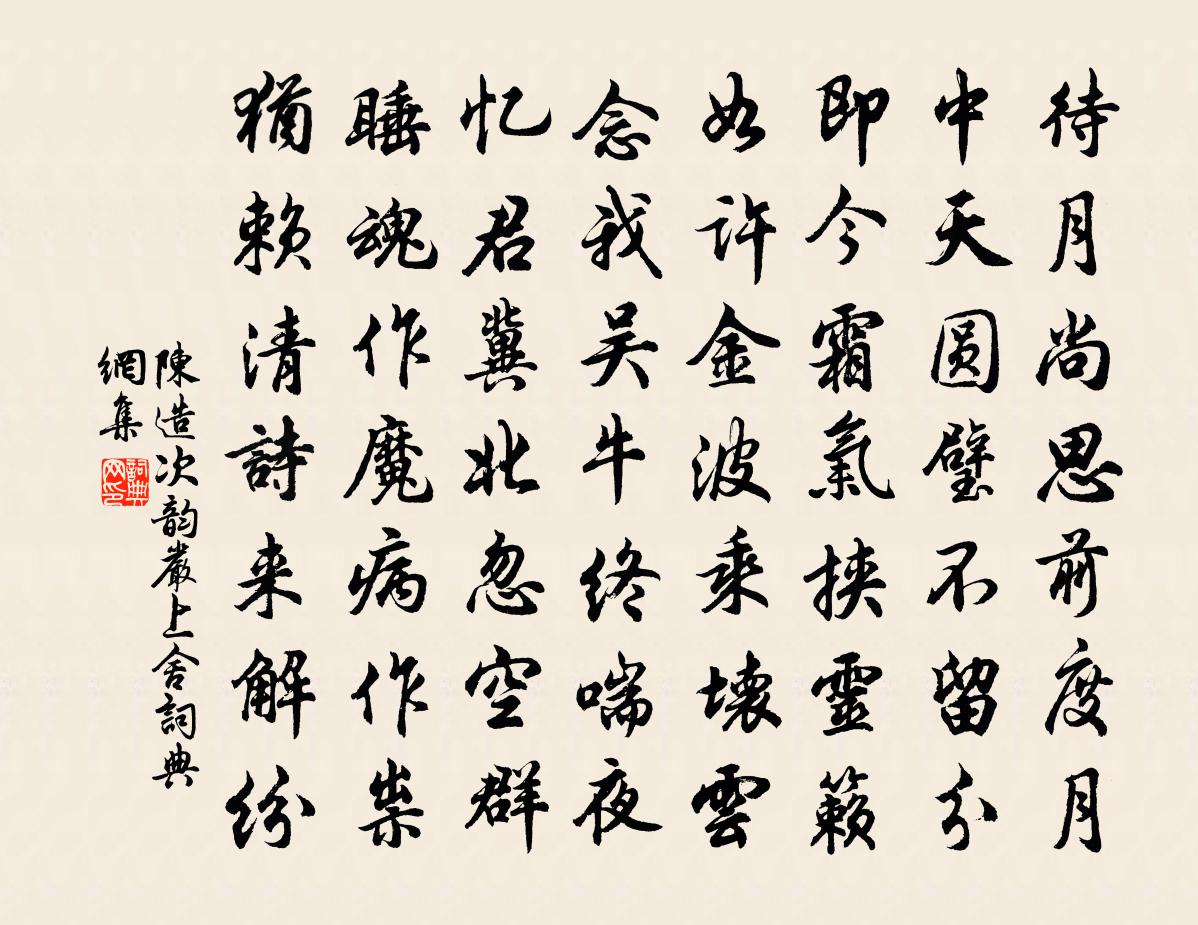 待月尚思前度月
中天圆璧不留分
即今霜氣挾靈籟
如許金波乘壞雲
念我吴牛終喘夜
忆君冀北忽空群
睡魂作魔病作祟
猶赖清詩来解纷
陳造次韵嚴上舍詞典
網集
詞典网印